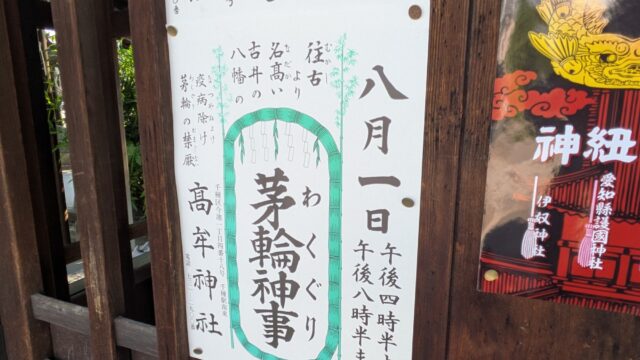 八月一日
午後四時半
午後八時半
往古より
むかし
名高い
なだかい
古井の
八幡の
わくぐり
茅輪神事
疫病除け
茅輪の禁厭
高牟神社
神紐
愛知縣護國神社
伊奴神社